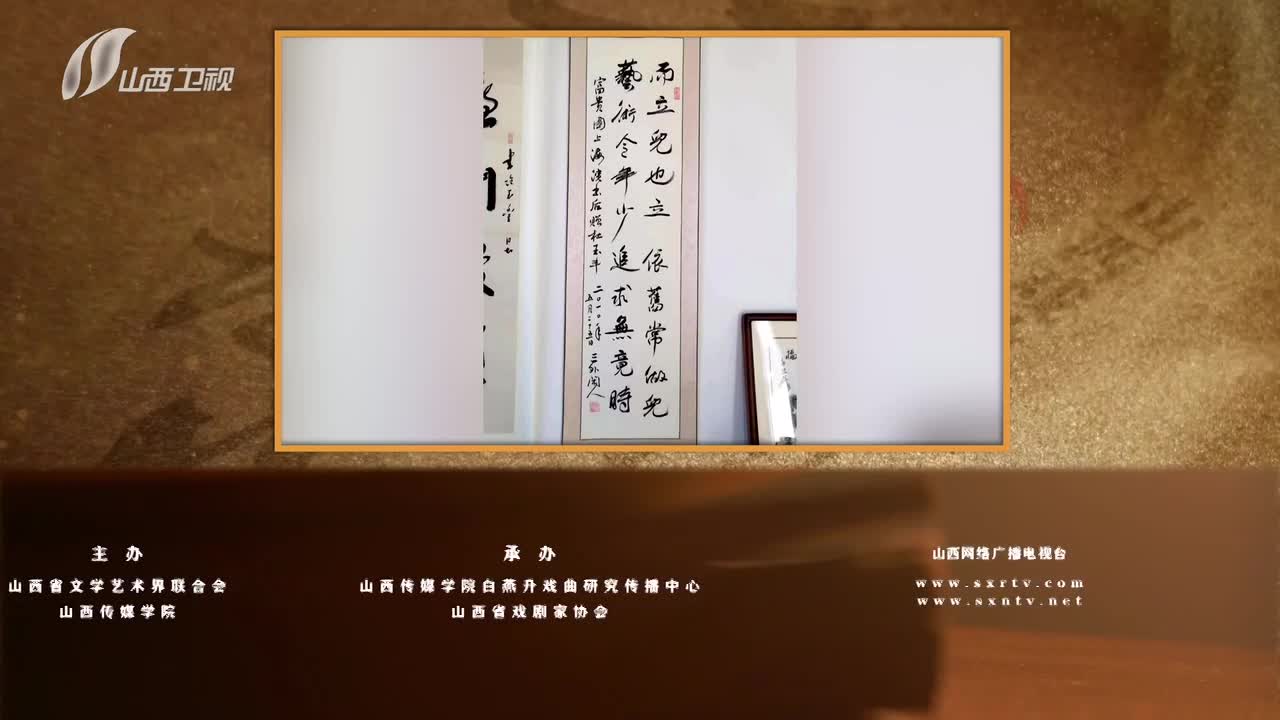 山西卫视
而立兒也立 依舊常做兒
藝術令年少 追求無竟時
富貴圖上海演出后赠杜玉斗 二〇一〇年
五月二十五日
主 办
山西省文学艺术界联合会
山西传媒学院
承 办
山西传媒学院白燕升戏曲研究传播中心
山西省戏剧家协会
山西网络广播电视台
www.sxrtv.com
www.sxntv.net